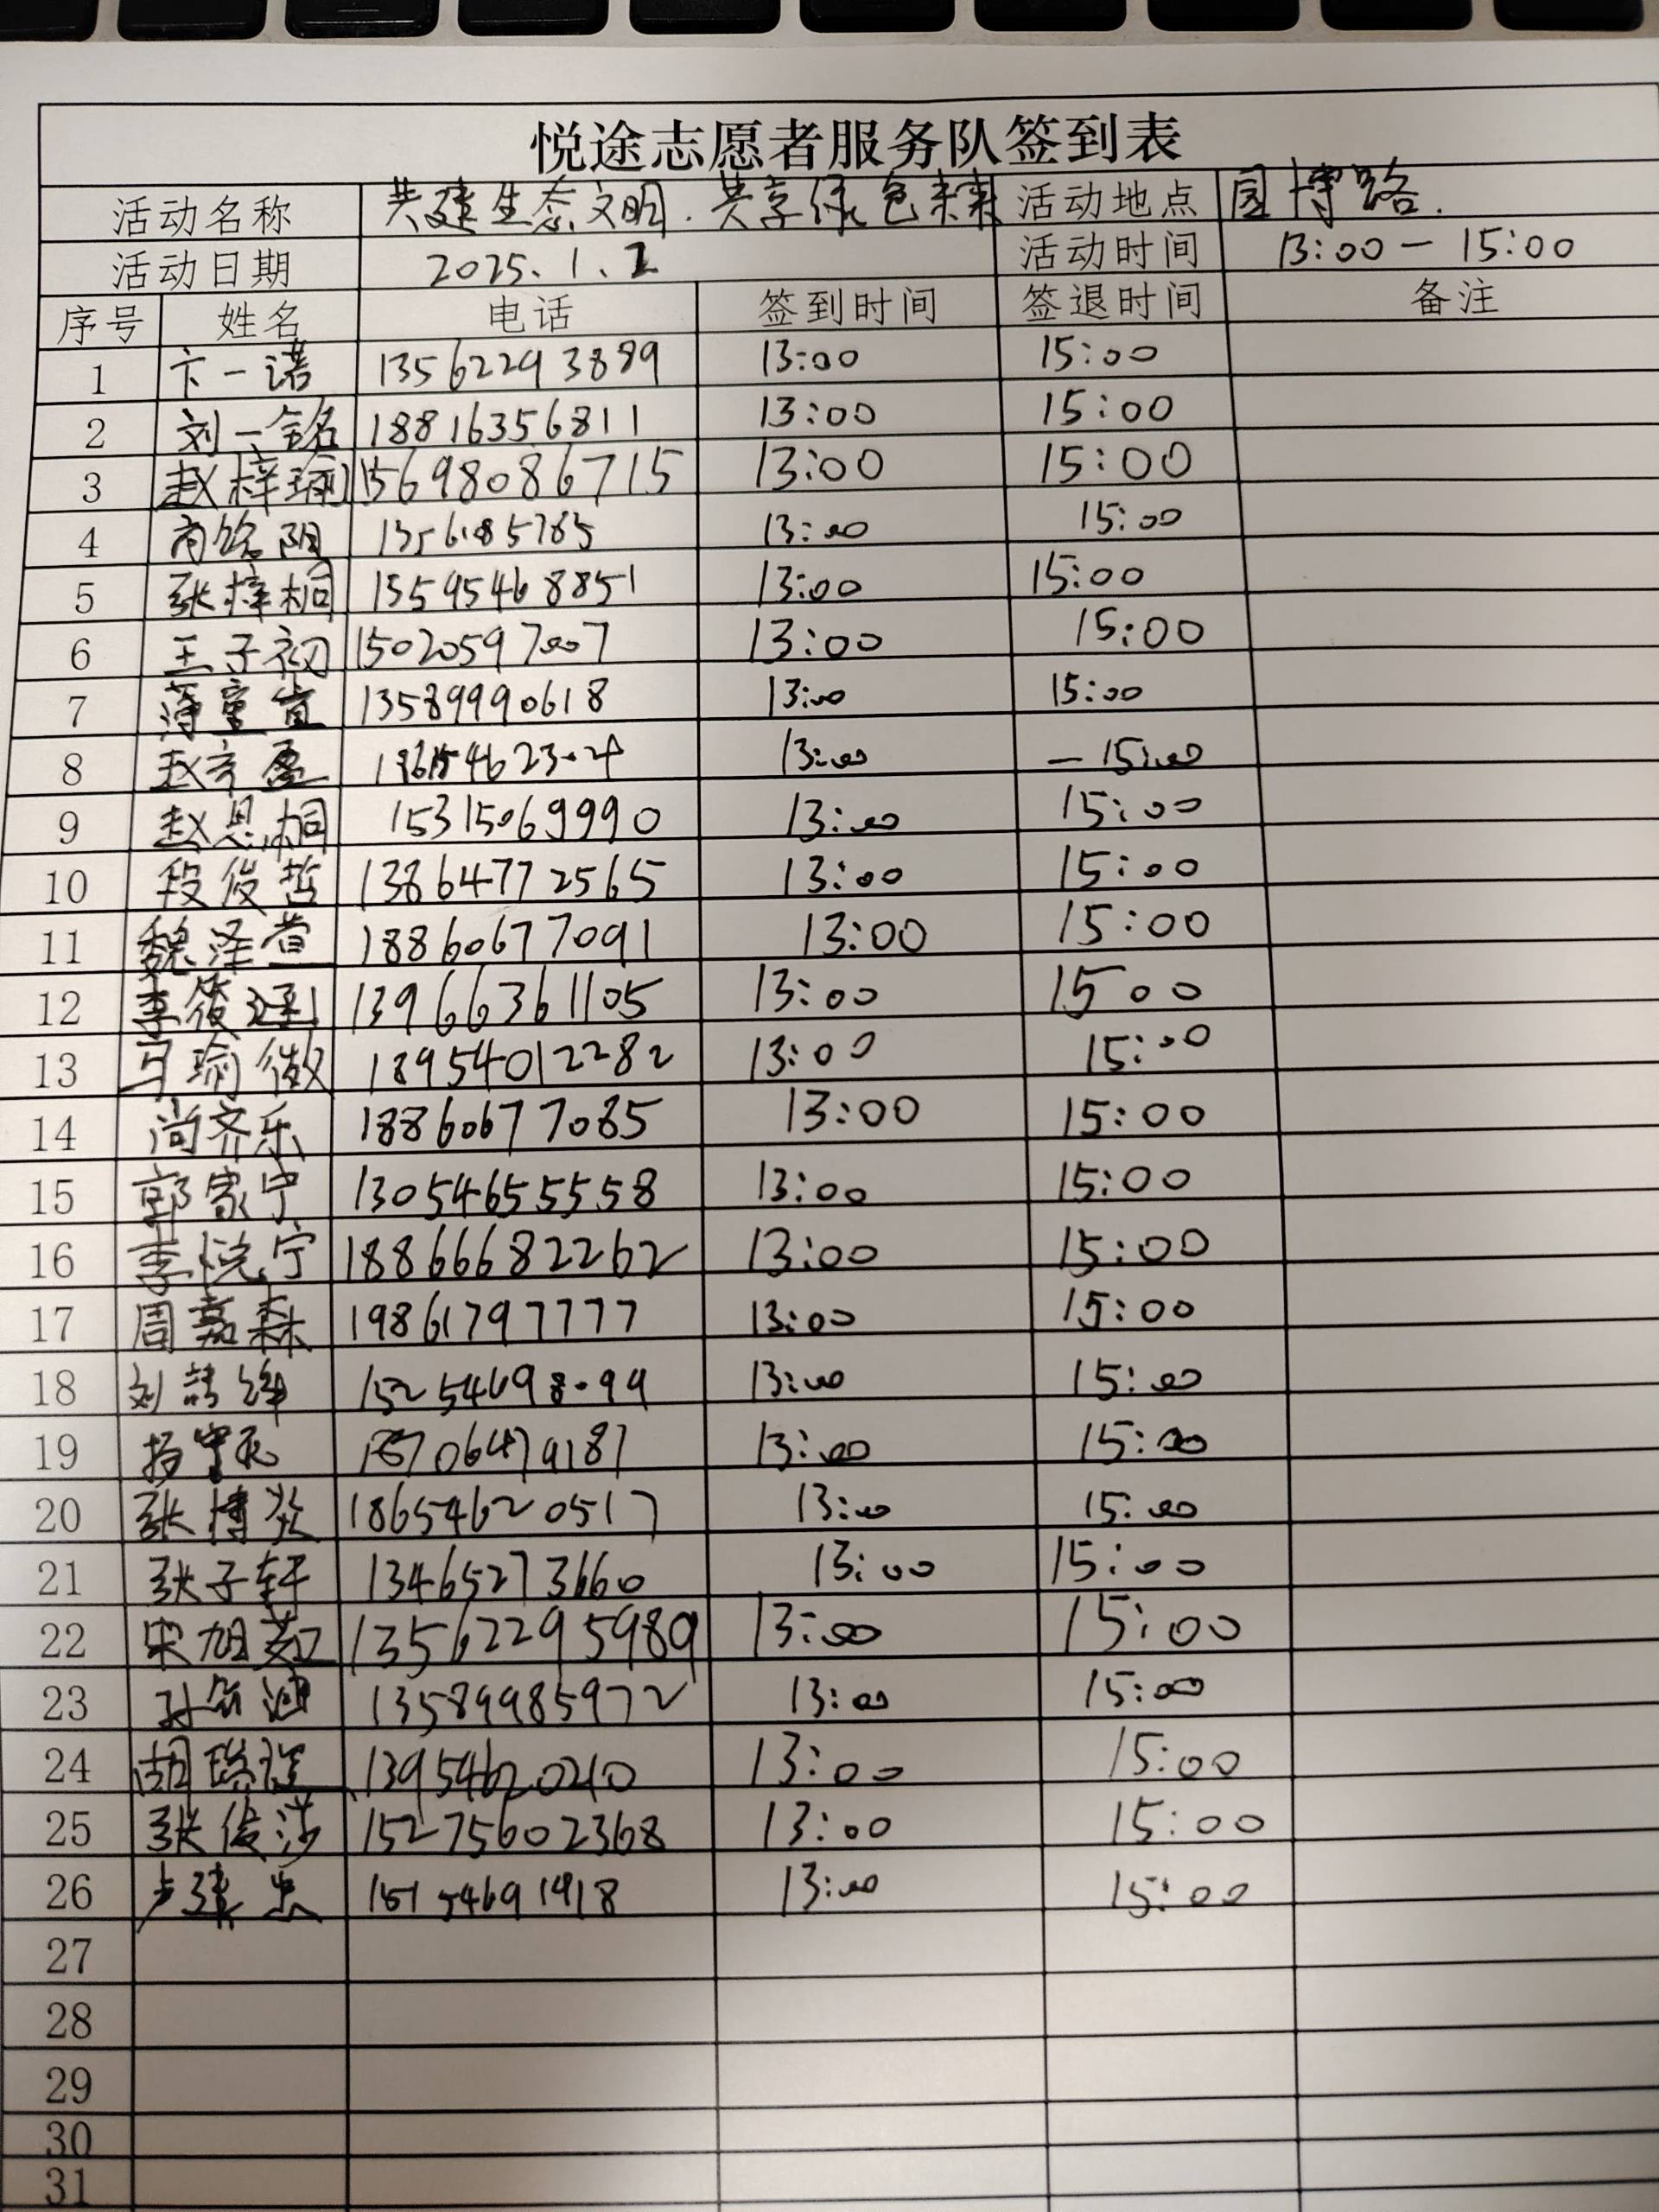 悦途志愿者服务队签到表
活动名称 共建生态文明.共享绿色未来 活动地点 园博路.
活动日期 2025.1.2 活动时间 13:00-15:00
序号 姓名 电话 签到时间 签退时间 备注
1 卞一诺 13562293889 13:00 15:00
2 刘一铭 18816356811 13:00 15:00
3 赵梓瑜 15698086715 13:00 15:00
4 13:00 15:00
5 张梓桐 13595468851 13:00 15:00
6 王子初 15020597007 13:00 15:00
7 薄童萱 13589990618 13:00 15:00
8 13:00 - 15:00
9 赵思桐 15315069990 13:00 15:00
10 段俊哲 13864772565 13:00 15:00
11 魏泽萱 18860677091 13:00 15:00
12 李筱涵 13966361105 13:00 15 00
13 瑜微 18954012282 13:00 15:00
14 尚齐乐 18860677085 13:00 15:00
15 郭家宁 13054655558 13:00 15:00
16 李悦宁 18866682262 13:00 15:00
17 周嘉森 19861797777 13:00 15:00
18 刘 15254698099 13:00 15:00
19 13:00 15:00
20 张博 18654620517 13:00 15:00
21 张子轩 13465273660 13:00 15:00
22 宋旭 13562295989 13:00 15:00
23 孙 13589985972 13:00 15:00
24 胡 13954620210 13:00 15:00
25 张俊莎 15275602368 13:00 15:00
26 卢 15154691918 13:00 15:00
27
28
29
30
31